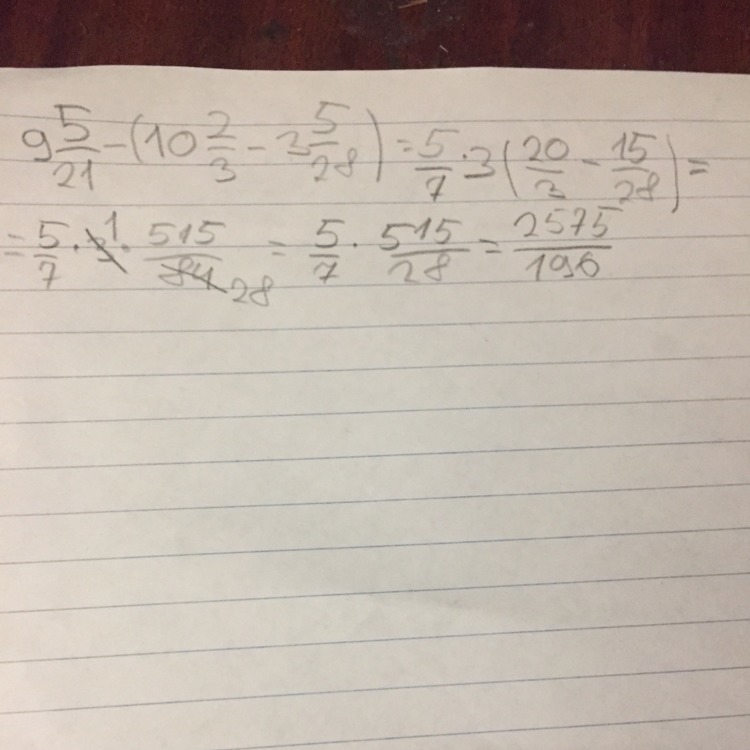 9 5/21 - (10 2/3 - 3 5/28) = 5/7 · 3 (20/3 - 15/28) =
= 5/7 · 3 1 · 515/84 28 = 5/7 · 515/28 = 2575/196